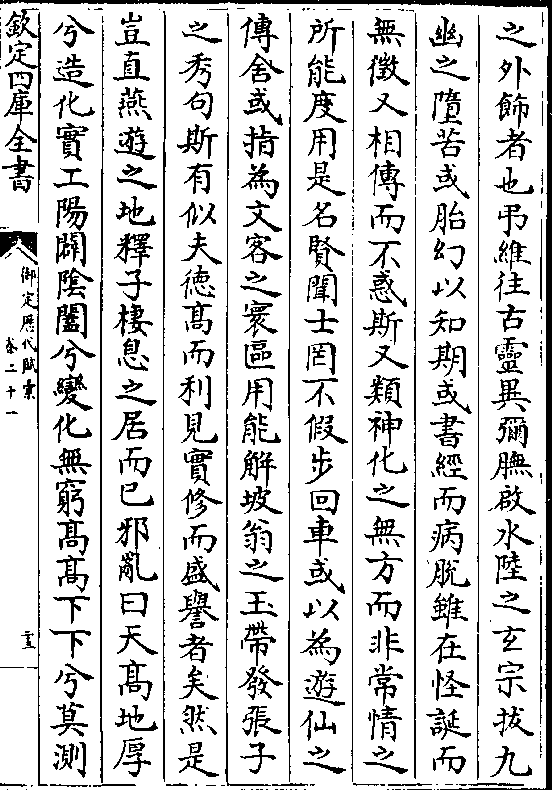 之外飾者也弔維往古靈異彌膴啟水陸之玄宗拔九
幽之墮苦或胎幻以知期或書經而病脫雖在怪誕而
無徵又相傳而不惑斯又類神化之無方而非常情之
所能度用是名賢聞士罔不假步回車或以為遊仙之
傳舍或指為文客之寰區用能解坡翁之玉帶發張子
之秀句斯有似夫德髙而利見實修而盛譽者矣然是
豈直燕遊之地釋子棲息之居而已邪亂曰天髙地厚
兮造化實工陽闢陰闔兮變化無窮髙髙下下兮莫測
欽定四庫全書
御定歷代賦彙
卷二十一
二十三